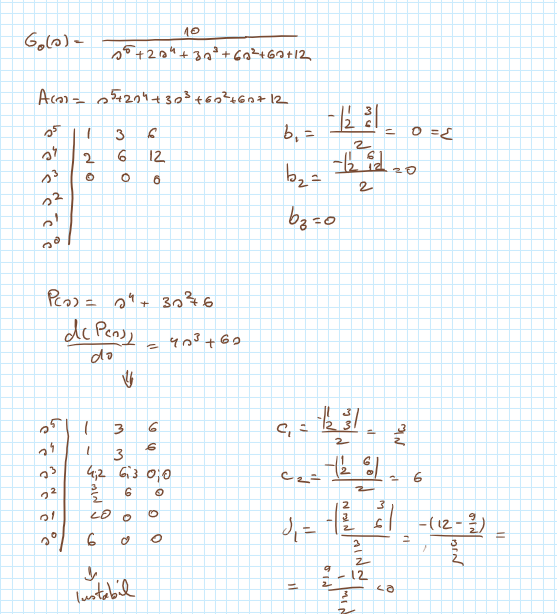 G₀(s) = 10 / (s⁵ + 2s⁴ + 3s³ + 6s² + 6s + 12)
A(s) = s⁵ + 2s⁴ + 3s³ + 6s² + 6s + 12
s⁵ | 1 3 6
s⁴ | 2 6 12
s³ | 0 0 0
s² |
s¹ |
s⁰ |
b₁ = -|1 3; 2 6| / 2 = 0 = ε
b₂ = -|1 6; 2 12| / 2 = 0
b₃ = 0
P(s) = s⁴ + 3s² + 6
d(P(s)) / ds = 4s³ + 6s
⇓
s⁵ | 1 3 6
s⁴ | 1 3 6
s³ | 4;2 6;3 0;0
s² | 3/2 6 0
s¹ | <0 0 0
s⁰ | 6 0 0
⇓
Instabil
c₁ = -|1 3; 2 3| / 2 = 3/2
c₂ = -|1 6; 2 0| / 2 = 6
d₁ = -|2 3; 3/2 6| / (3/2) = -(12 - 9/2) / (3/2) =
= (9/2 - 12) / (3/2) < 0